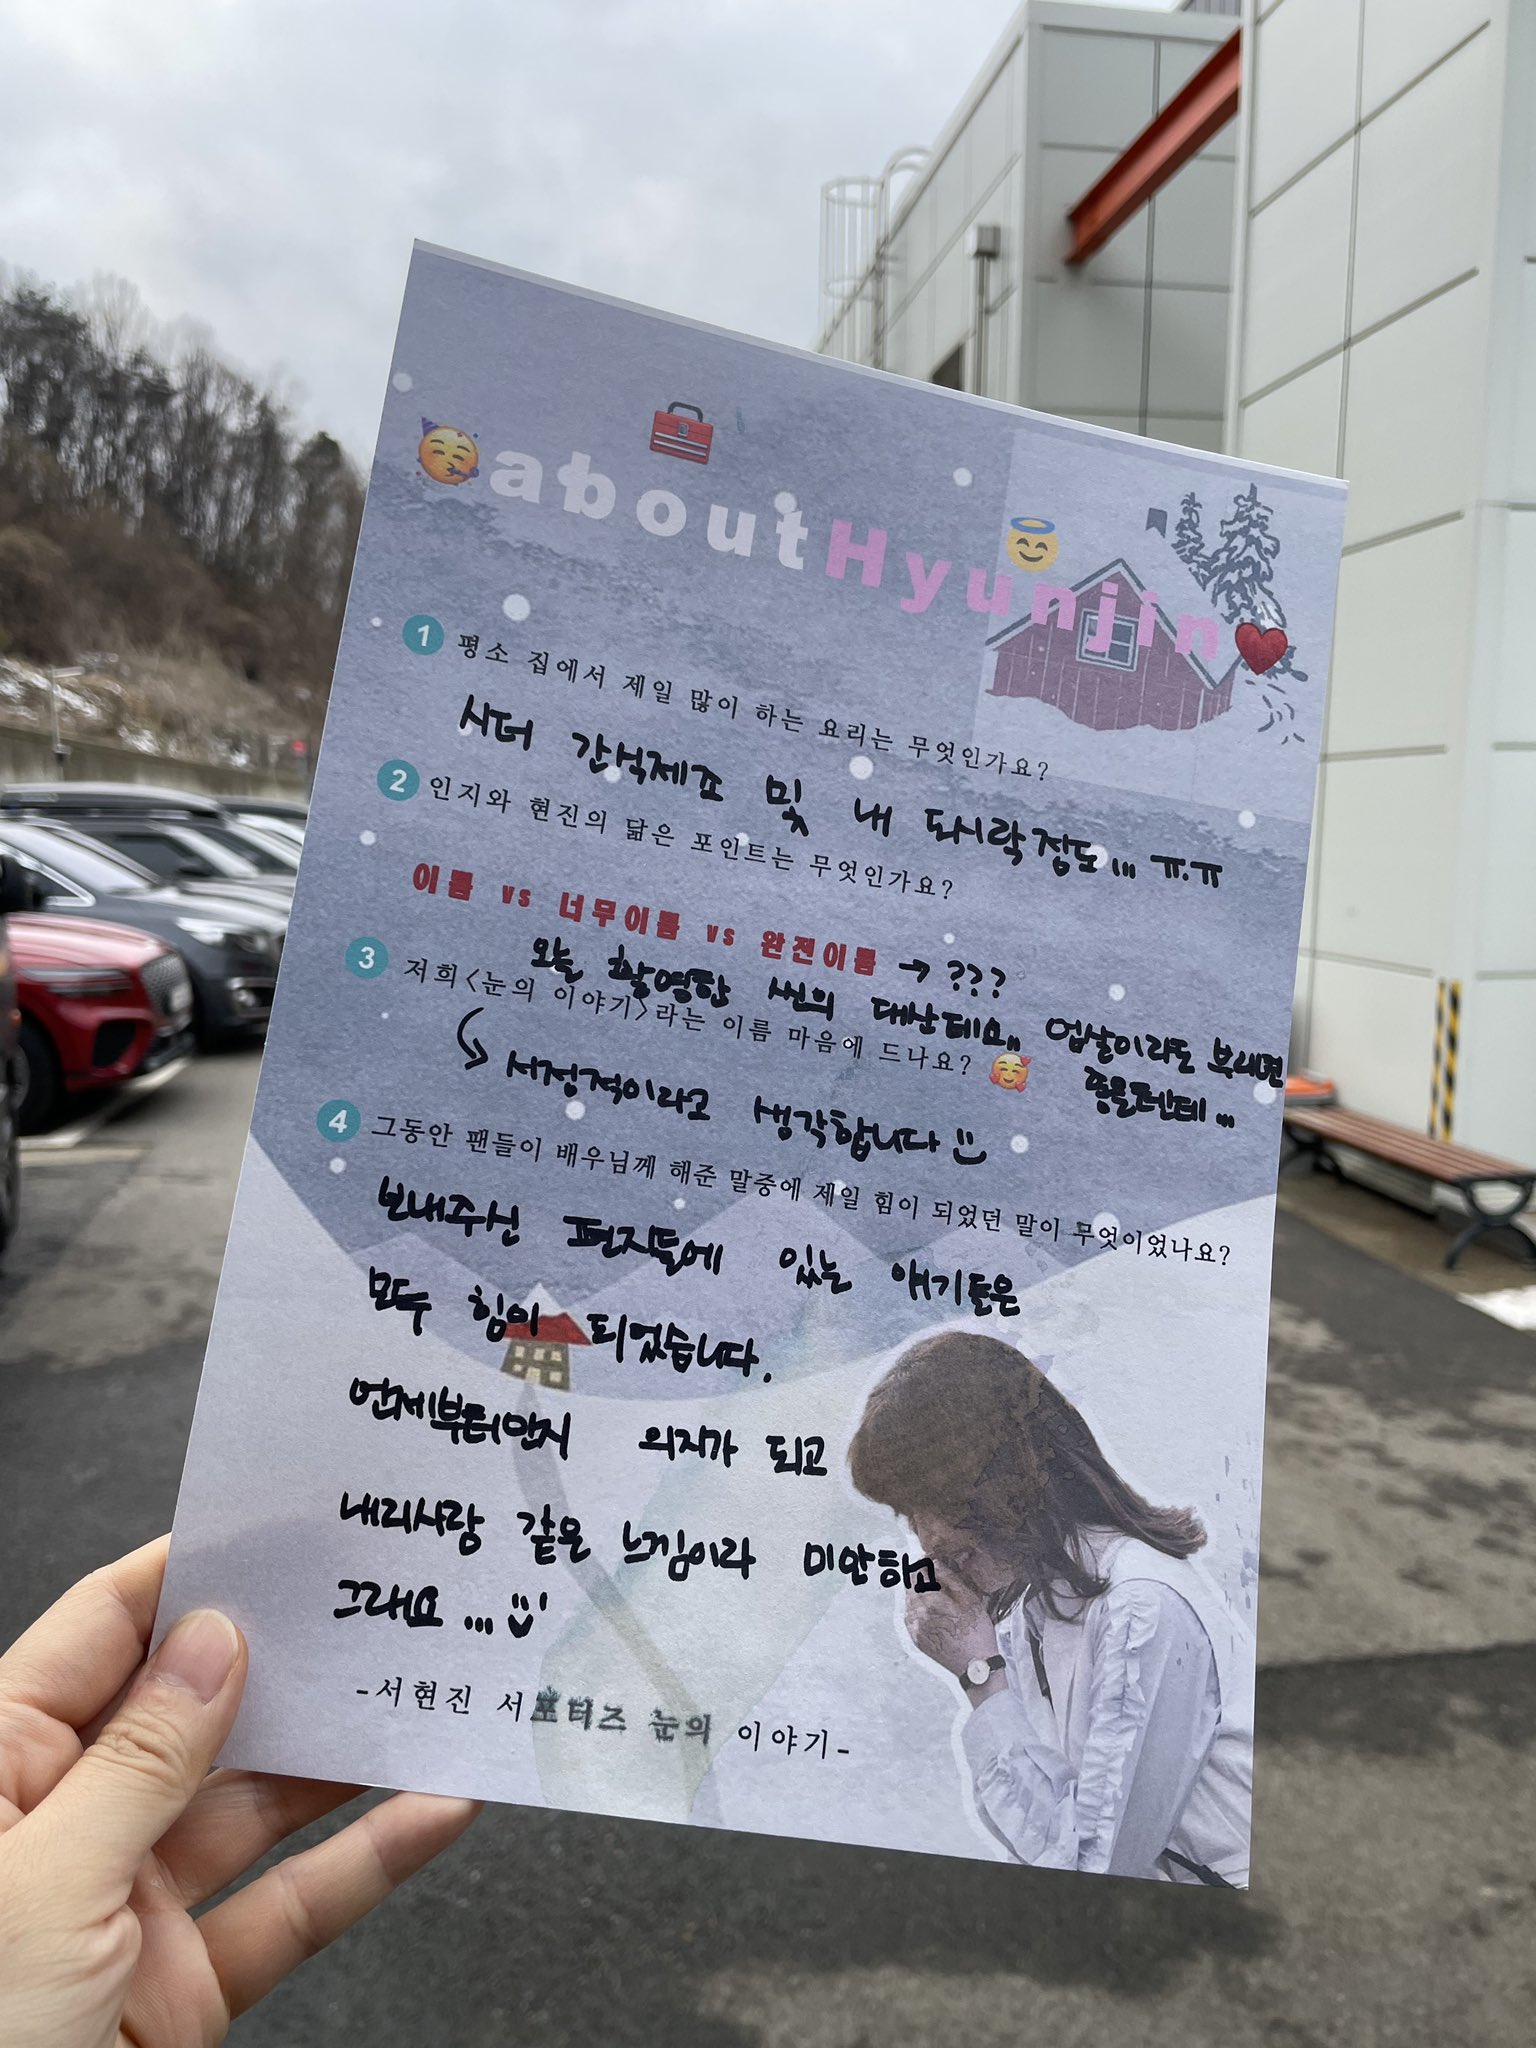 aboutHyunjin
1 평소 집에서 제일 많이 하는 요리는 무엇인가요?
시더 간식제조 및 내 도시락 정도... ㅠ.ㅠ
2 인지와 현진의 닮은 포인트는 무엇인가요?
이름 vs 너무이름 vs 완전이름 → ???
오늘 촬영한 씬의 대산데요,, 엽살이라도 보내면
좋을텐데...
3 저희<눈의 이야기>라는 이름 마음에 드나요?
서정적이라고 생각합니다
4 그동안 팬들이 배우님께 해준 말중에 제일 힘이 되었던 말이 무엇이었나요?
보내주신 편지들에 있는 얘기들은
모두 힘이 되었습니다.
언제부터인지 의지가 되고
내리사랑 같은 느낌이라 미안하고
그래요...
-서현진 서포터즈 눈의 이야기-